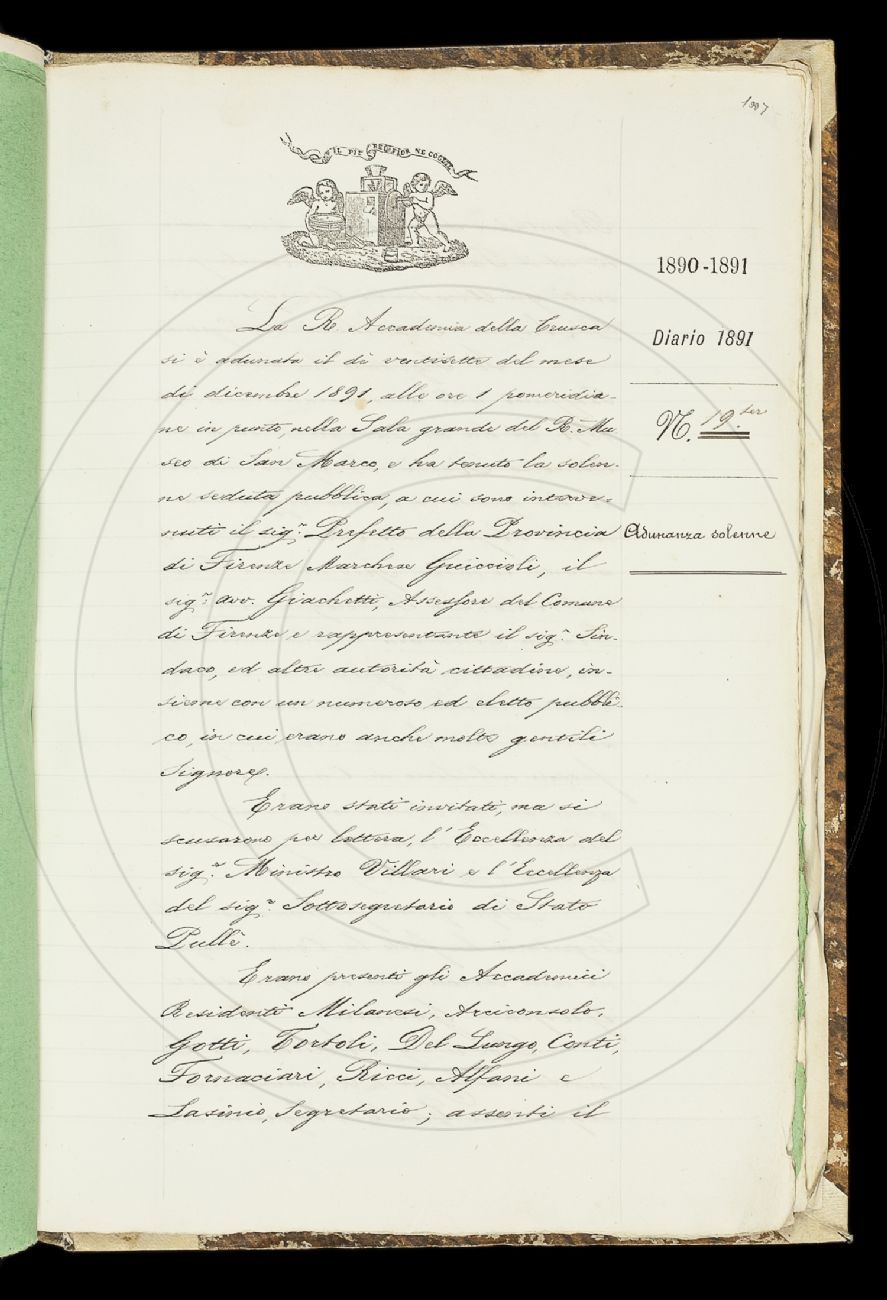 IL PIÙ BEL FIOR NE COGLIE
1890-1891
Diario 1891
N. 19.ter
Adunanza solenne
La R. Accademia della Crusca
si è adunata il dì ventisette del mese
di dicembre 1891, alle ore 1 pomeridia-
ne in punto, nella Sala grande del R. Mu
seo di San Marco, e ha tenuto la solen-
ne seduta pubblica, a cui sono interve-
nuti il sigr. Prefetto della Provincia
di Firenze Marchese Guiccioli, il
sigr. avv. Giachetti, Assessore del Comune
di Firenze e rappresentante il sigr. Sin-
daco, ed altre autorità cittadine, in-
sieme con un numeroso ed eletto pubbli-
co, in cui erano anche molte gentili
Signore.
Erano stati invitati, ma si
scusarono per lettera, l'Eccellenza del
sigr. Ministro Villari e l'Eccellenza
del sigr. Sottosegretario di Stato
Pullè.
Erano presenti gli Accademici
Residenti Milanesi, Arciconsolo,
Gotti, Tortoli, Del Lungo, Conti,
Fornaciari, Ricci, Alfani e
Lasinio, Segretario; assenti il